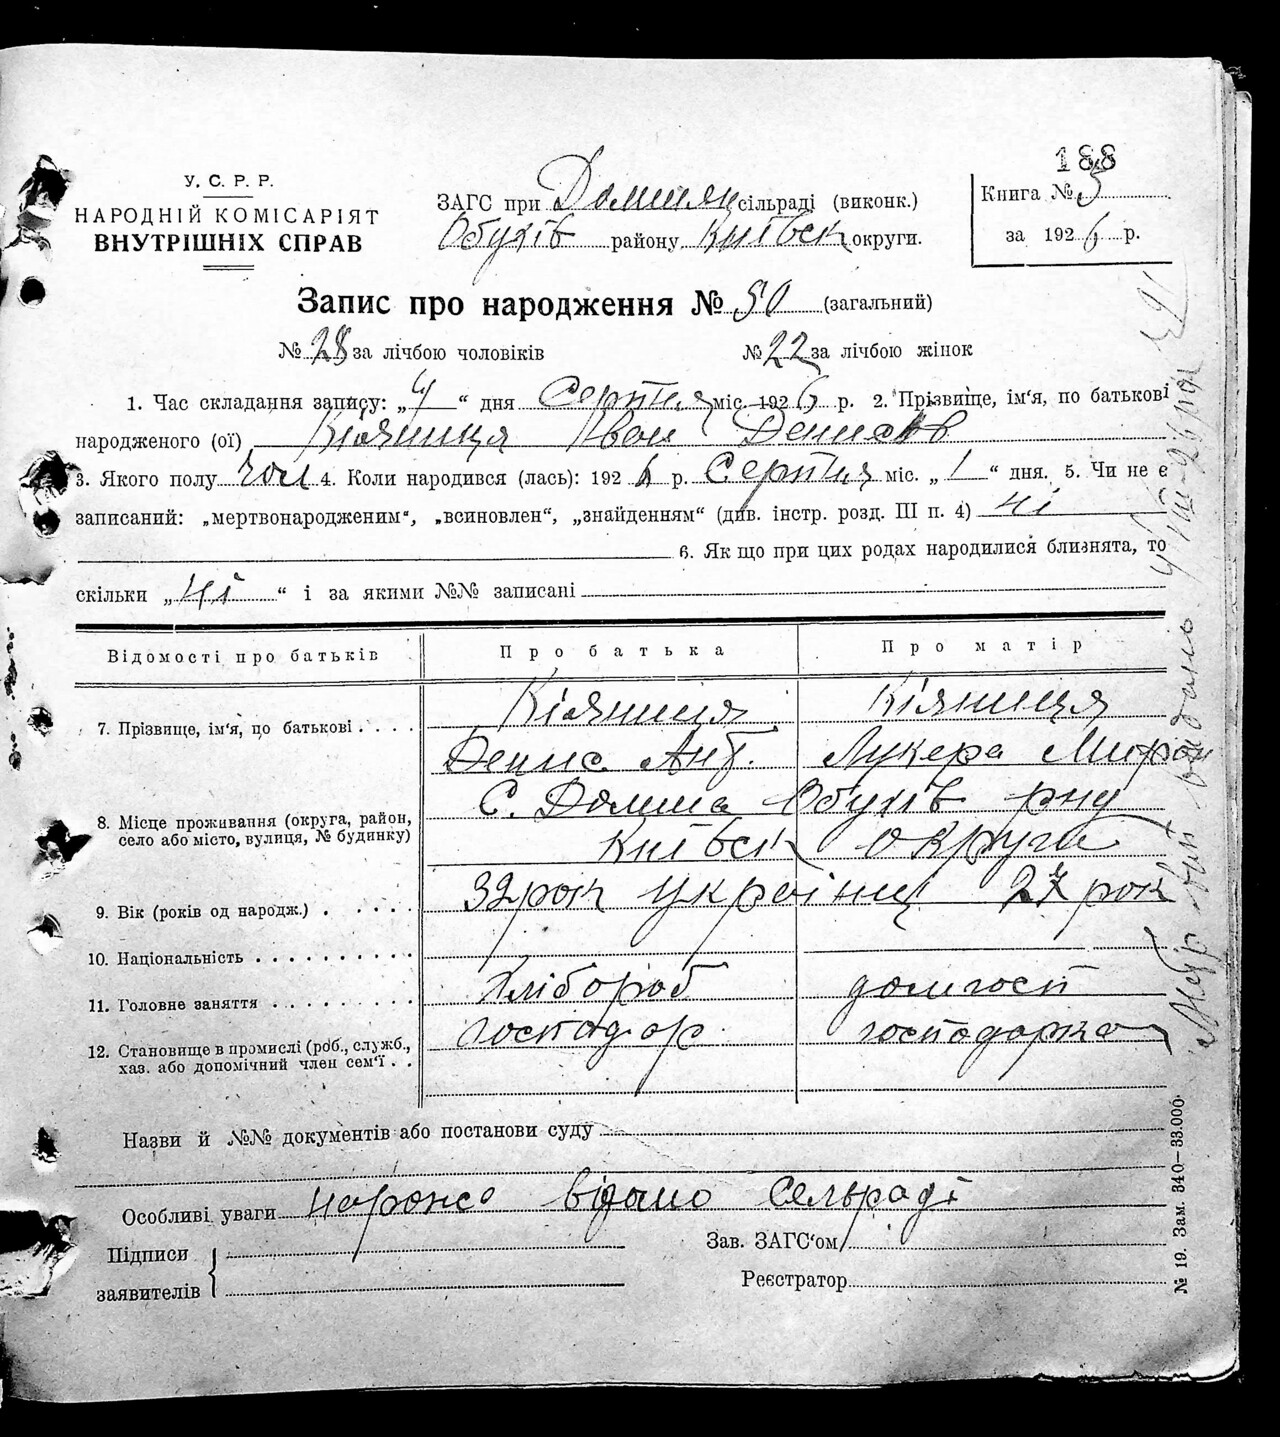 188
У. С. Р. Р.
НАРОДНІЙ КОМІСАРІЯТ
ВНУТРІШНІХ СПРАВ
ЗАГС при Долинян сільраді (виконк.)
Обухів району Київськ округи.
Книга № 5
за 1926 р.
Запис про народження № 50 (загальний)
№ 28 за лічбою чоловіків № 22 за лічбою жінок
1. Час складання запису: „4“ дня Серпня міс. 1926 р. 2. Прізвище, ім'я, по батькові
народженого (ої) Кіяниця Іван Денисов
3. Якого полу чол 4. Коли народився (лась): 1926 р. Серпня міс. „1“ дня. 5. Чи не є
записаний: „мертвонародженим“, „всиновлен“, „знайденням“ (див. інстр. розд. III п. 4) ні
6. Як що при цих родах народилися близнята, то
скільки „ні“ і за якими №№ записані
Відомості про батьків Про батька Про матір
7. Прізвище, ім'я, по батькові . . . . Кіяниця Кіяниця
Денис Ант. Лукера Мирон
8. Місце проживання (округа, район, село або місто, вулиця, № будинку) С. Долина Обухів рну
Київськ округи
9. Вік (років од народж.) . . . . . 32 рок українці 27 рок
10. Національність . . . . . . . . . .
11. Головне заняття . . . . . . . . . Хлібороб домгосп
12. Становище в промислі (роб., служб., хаз. або допомічний член сем'ї . . господар господарка
Назви й №№ документів або постанови суду
Особливі уваги нарожд відомо Сельраді
Підписи
заявителів
Зав. ЗАГС'ом
Реєстратор
№ 19. Зам. 340—33.000.